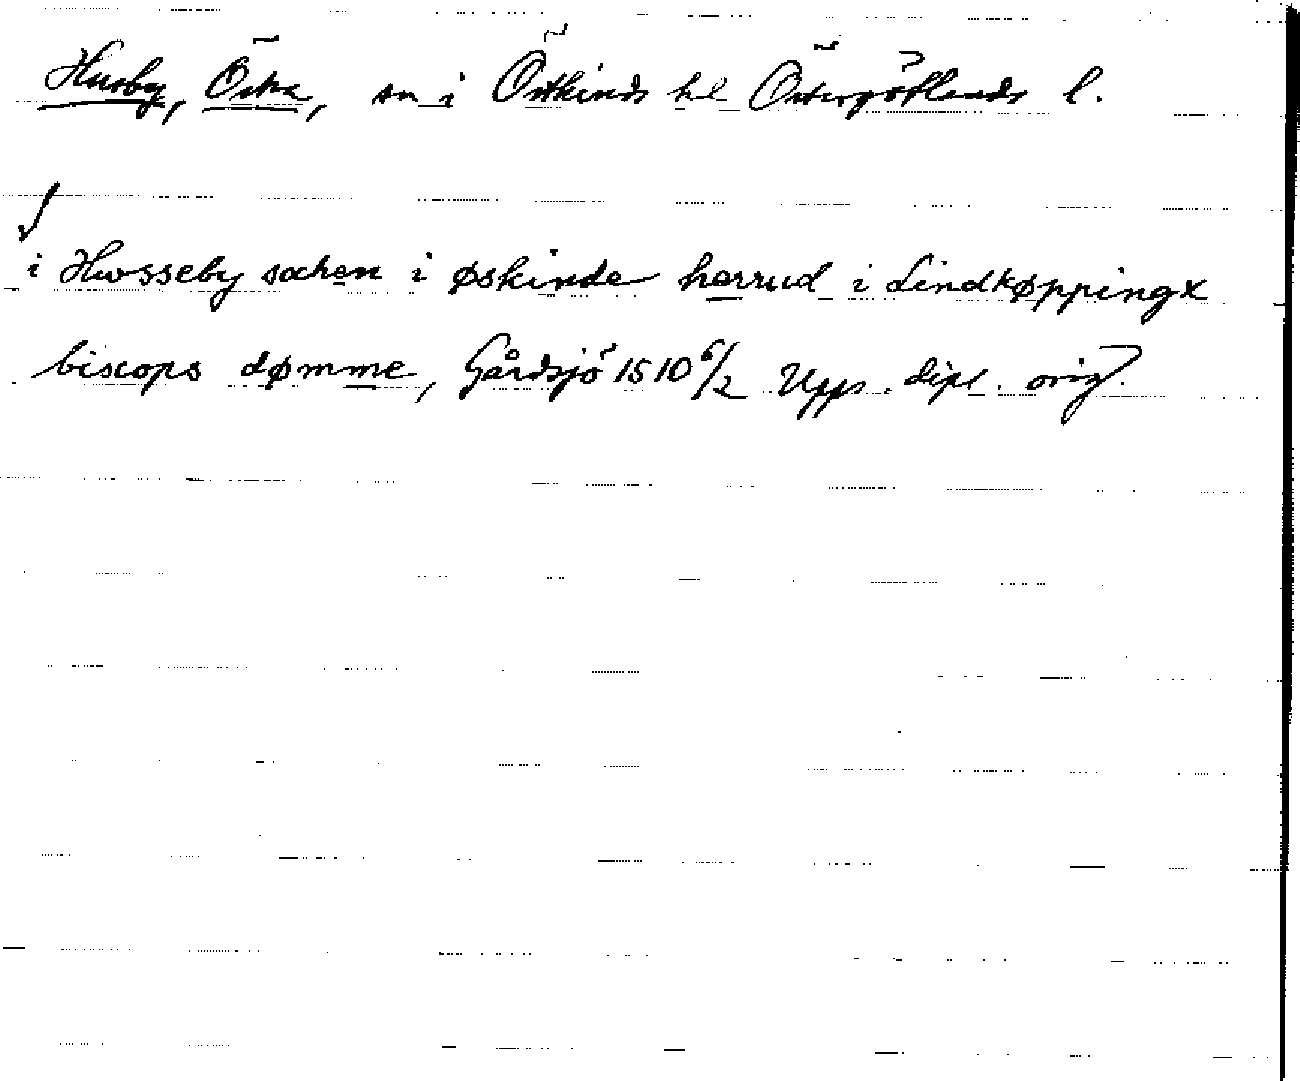 Husby, Östra, sn i Östkinds hd Östergötlands l.
i Husseby sochen i øskinde herrud i Lindkøppingx
biscops dømme, Gårdsjö 1510 6/2 Upps. dipl. orig.